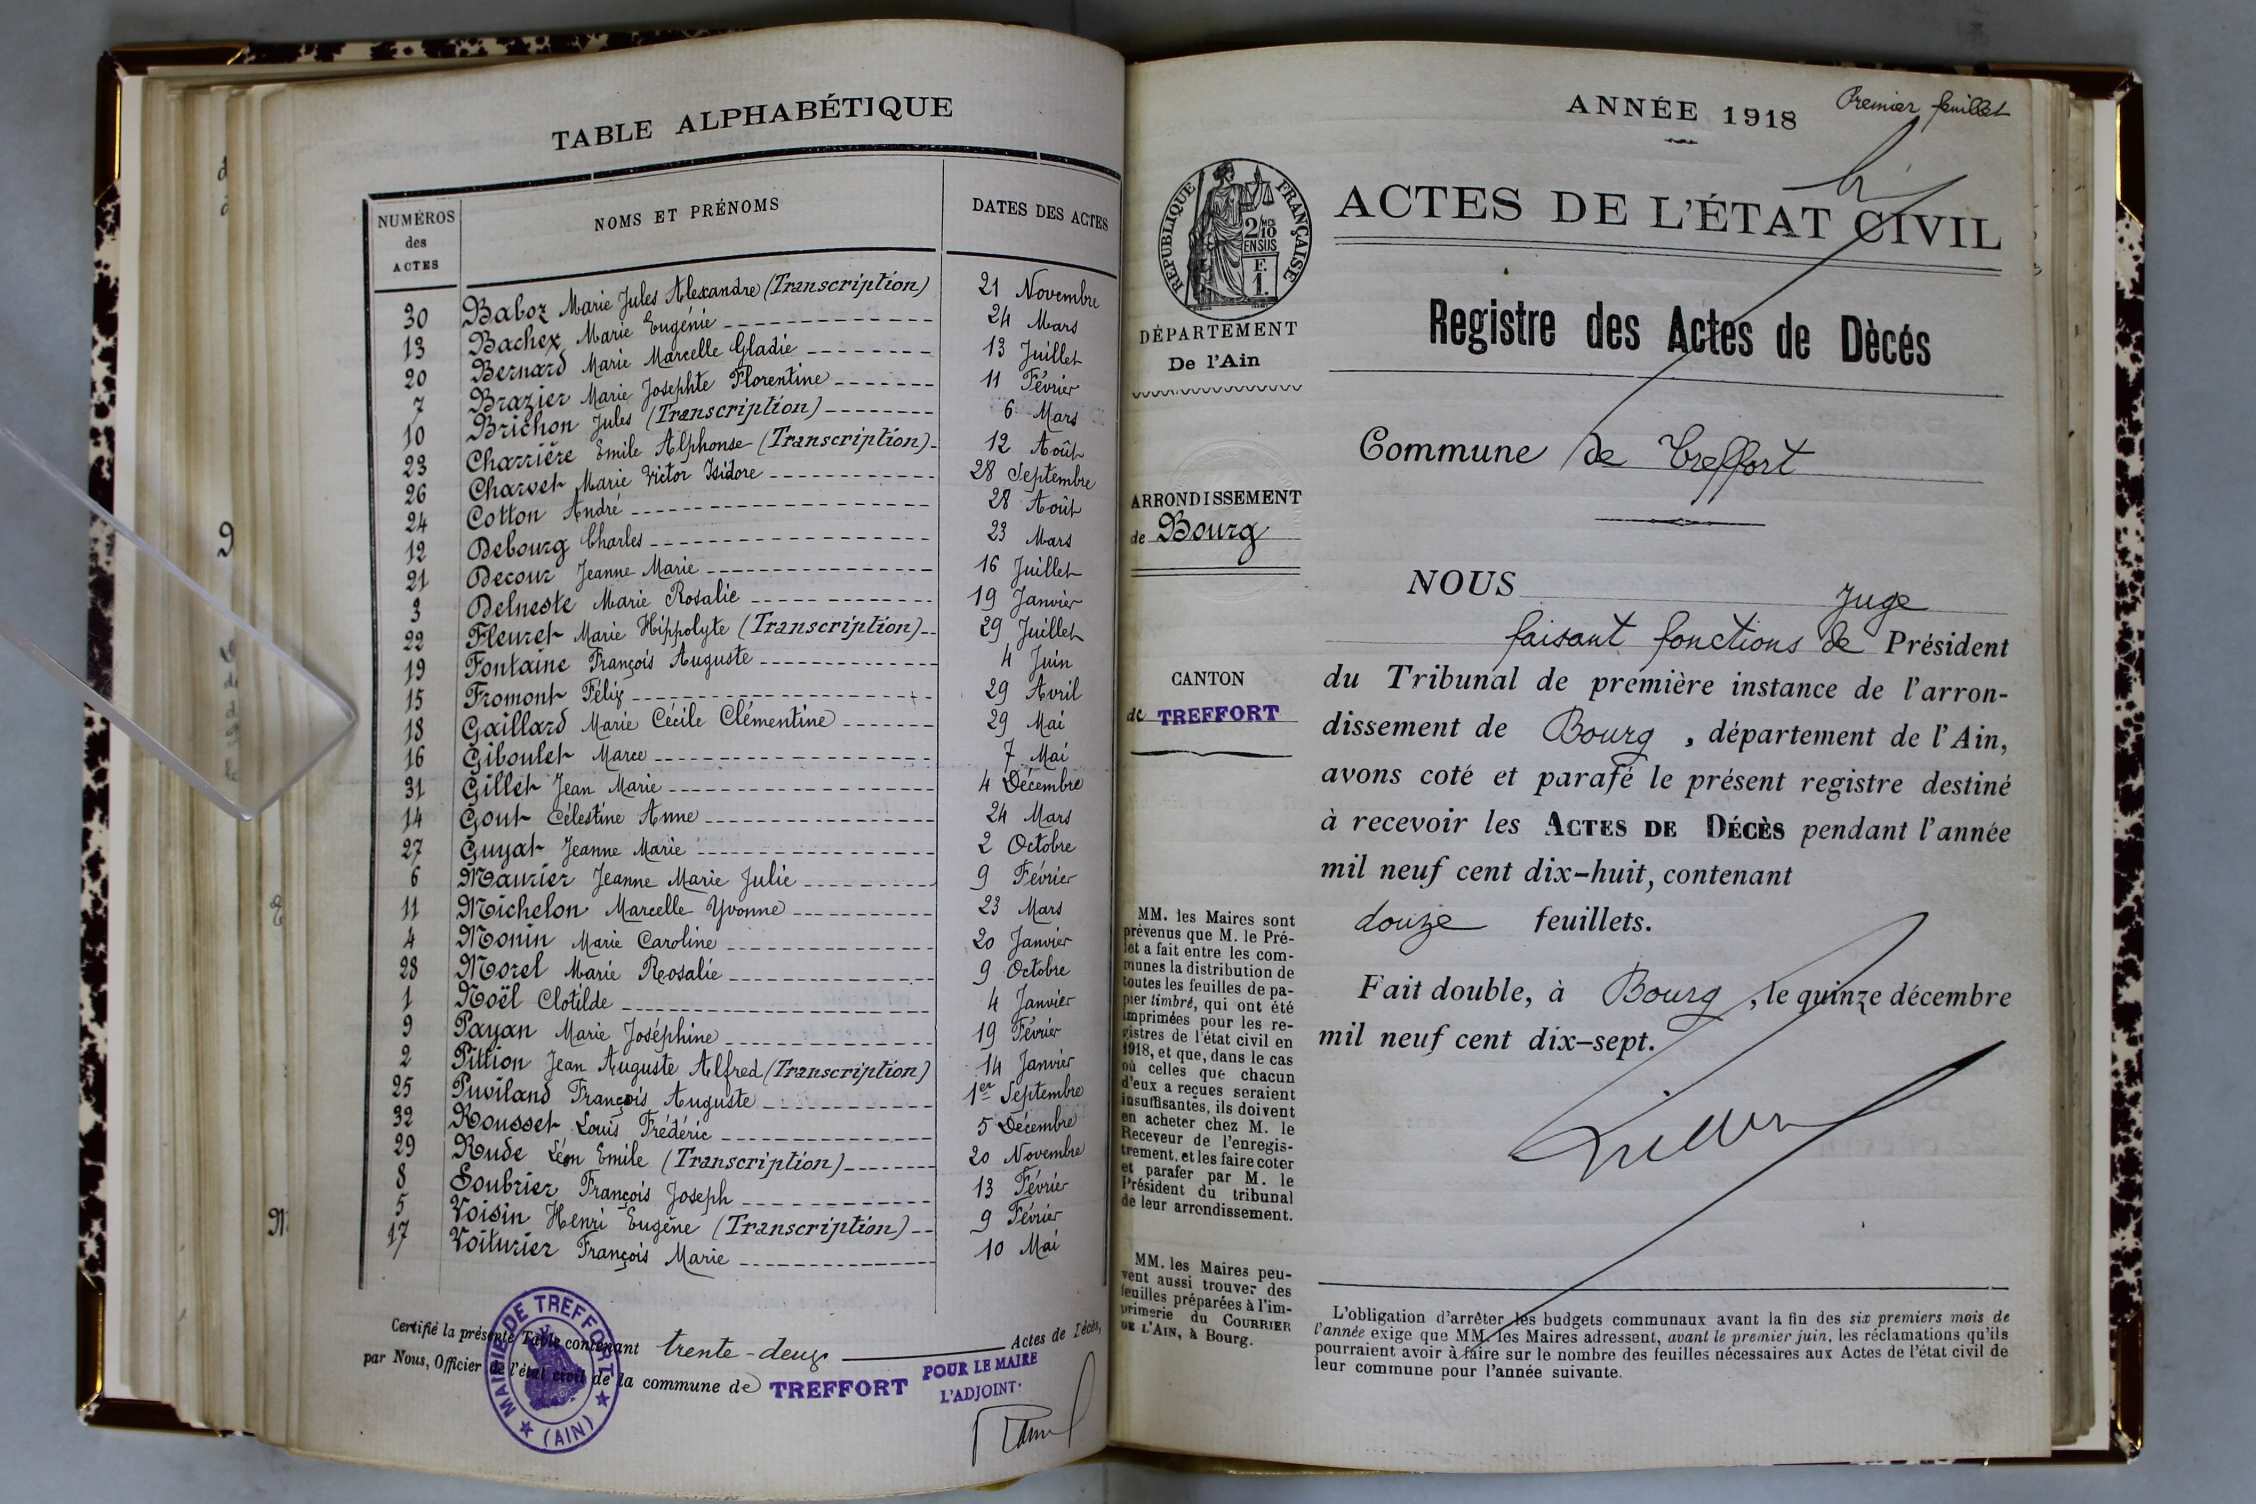 TABLE ALPHABÉTIQUE
NUMÉROS des ACTES NOMS ET PRÉNOMS DATES DES ACTES
30 Baboz Marie Jules Alexandre (Transcription) 21 Novembre
13 Bachex Marie Eugénie 24 Mars
20 Bernard Marie Marcelle Gladie 13 Juillet
7 Brazier Marie Josephte Florentine 11 Février
10 Brichon Jules (Transcription) 6 Mars
23 Charrière Emile Alphonse (Transcription) 12 Août
26 Charvet Marie Victor Isidore 28 Septembre
24 Cotton André 28 Août
12 Debourg Charles 23 Mars
21 Decour Jeanne Marie 16 Juillet
3 Delneste Marie Rosalie 19 Janvier
22 Fleuret Marie Hippolyte (Transcription) 29 Juillet
19 Fontaine François Auguste 4 Juin
15 Fromont Félix 29 Avril
18 Gaillard Marie Cécile Clémentine 29 Mai
16 Giboulet Marce 7 Mai
31 Gillet Jean Marie 4 Décembre
14 Gout Célestine Anne 24 Mars
27 Guyat Jeanne Marie 2 Octobre
6 Maurier Jeanne Marie Julie 9 Février
11 Michelon Marcelle Yvonne 23 Mars
4 Monin Marie Caroline 20 Janvier
28 Morel Marie Rosalie 9 Octobre
1 Noël Clotilde 4 Janvier
9 Payan Marie Joséphine 19 Février
2 Pittion Jean Auguste Alfred (Transcription) 14 Janvier
25 Puviland François Auguste 1er Septembre
32 Rousset Louis Frédéric 5 Décembre
29 Rude Léon Emile (Transcription) 20 Novembre
8 Soubrier François Joseph 13 Février
5 Voisin Henri Eugène (Transcription) 9 Février
17 Voiturier François Marie 10 Mai
Certifié la présente Table contenant trente-deux Actes de Décès,
par Nous, Officier de l'état civil de la commune de TREFFORT
POUR LE MAIRE
L'ADJOINT
MAIRIE DE TREFFORT
(AIN)
ANNÉE 1918
Premier feuillet
ACTES DE L'ÉTAT CIVIL
RÉPUBLIQUE FRANÇAISE
2/10
EN SUS
F.
1.
DÉPARTEMENT
De l'Ain
ARRONDISSEMENT
de Bourg
CANTON
de TREFFORT
MM. les Maires sont
prévenus que M. le Pré-
fet a fait entre les com-
munes la distribution de
toutes les feuilles de pa-
pier timbré, qui ont été
imprimées pour les re-
gistres de l'état civil en
1918, et que, dans le cas
où celles que chacun
d'eux a reçues seraient
insuffisantes, ils doivent
en acheter chez M. le
Receveur de l'enregis-
trement, et les faire coter
et parafer par M. le
Président du tribunal
de leur arrondissement.
MM. les Maires peu-
vent aussi trouver des
feuilles préparées à l'im-
primerie du COURRIER
DE L'AIN, à Bourg.
Registre des Actes de Dècés
Commune de Treffort
NOUS Juge
faisant fonctions de Président
du Tribunal de première instance de l'arron-
dissement de Bourg, département de l'Ain,
avons coté et parafé le présent registre destiné
à recevoir les ACTES DE DÉCÈS pendant l'année
mil neuf cent dix-huit, contenant
douze feuillets.
Fait double, à Bourg, le quinze décembre
mil neuf cent dix-sept.
L'obligation d'arrêter les budgets communaux avant la fin des six premiers mois de
l'année exige que MM. les Maires adressent, avant le premier juin, les réclamations qu'ils
pourraient avoir à faire sur le nombre des feuilles nécessaires aux Actes de l'état civil de
leur commune pour l'année suivante.